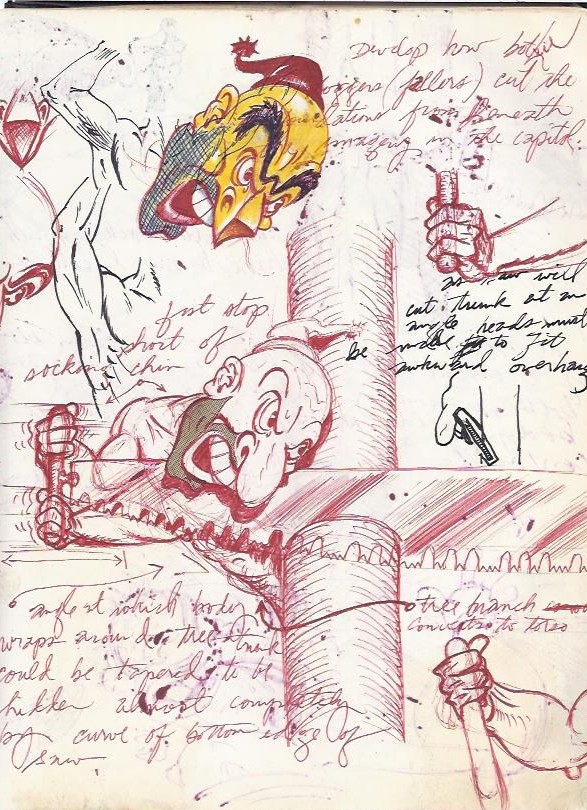 Develop how both
loggers (fellers) cut the
from beneath
imagery in the capitol.
as saw will
cut trunk at an
angle heads must
be made to fit
awkward overhang
fist stop
short of
socking chin
tree branch
converts to torso
angle at which body
wraps around tree trunk
could be tapered to be
hidden almost completely
by curve of bottom edge of
saw